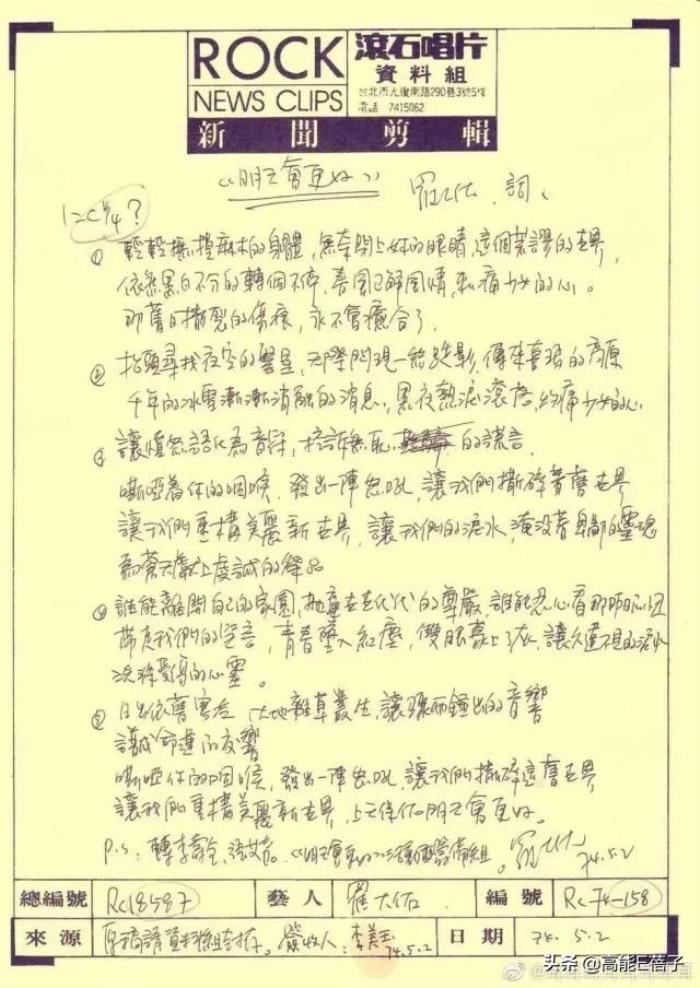 ROCK
NEWS CLIPS
滾石唱片
資料組
台北市光復南路290巷3號5樓
電話 7415062
新聞剪輯
《明天會更好》 羅大佑 詞、
1=C 4/4?
① 輕輕撫摸麻木的身體，無奈閉上妳的眼睛，這個荒謬的世界，
依然黑白不分的轉個不停，春風不解風情，刺痛少女的心。
那舊日撕裂的傷痕，永不會癒合了
② 抬頭尋找夜空的繁星，天際閃現一絲 影，傳來喜瑪的高原
千年的冰雪漸漸消融的消息，黑夜熱淚滾落，灼痛少女的心
③ 讓憤怒語化為音符，控訴無恥 的謊言，
嘶啞著你的咽喉，發出一陣怒吼，讓我們撕碎著舊世界
讓我們重構美麗新世界，讓我們的淚水，淹沒著卑鄙的靈魂
為蒼天獻上虔誠的祭品
④ 誰能離開自己的家園，拋棄世世代代的尊嚴，誰能忍心看那昨日
帶走我們的 言，青春墜入紅塵，雙眼蒙上了灰，讓久違不見的淚水
洗滌受傷的心靈。
⑤ 日出依舊寒冷 大地雜草叢生，讓 鐘出的音響
譜成命運的交響
嘶啞你的咽喉，發出一陣怒吼，讓我們撕碎這舊世界
讓我們重構美麗新世界，上天保佑明天會更好。
P.S：轉李壽全、張艾嘉。《明天會更好》 籌備組。羅大佑 74.5.2
總編號 Rc18587 藝人 羅大佑 編號 Rc74-158
來源 原稿請資料組封存。簽收人：李美玉 74.5.2 日期 74.5.2
头条 @高能E蓓子